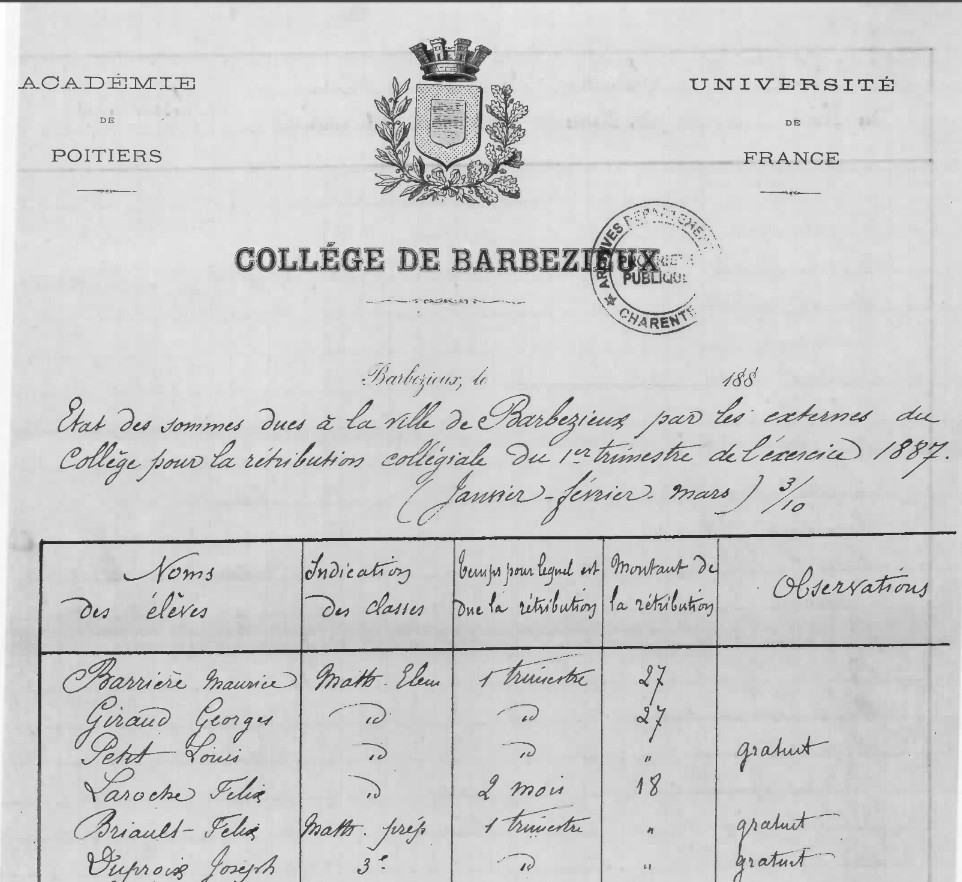 ACADÉMIE
DE
POITIERS
UNIVERSITÉ
DE
FRANCE
COLLÉGE DE BARBEZIEUX
ARCHIVES DEPARTEMENT
PUBLIQUE
CHARENTE
Barbezieux, le 188
Etat des sommes dues à la ville de Barbezieux par les externes du
Collège pour la rétribution collégiale du 1er trimestre de l'exercice 1887.
(Janvier - février - mars) 3/10
Noms des élèves | Indication des classes | temps pour lequel est due la rétribution | Montant de la rétribution | Observations
Barrière Maurice | Math. Elem | 1 trimestre | 27
Giraud Georges | id | id | 27
Petit Louis | id | id | " | gratuit
Laroche Felix | id | 2 mois | 18
Briault Felix | Math. prép | 1 trimestre | " | gratuit
Duproix Joseph | 3e | id | " | gratuit